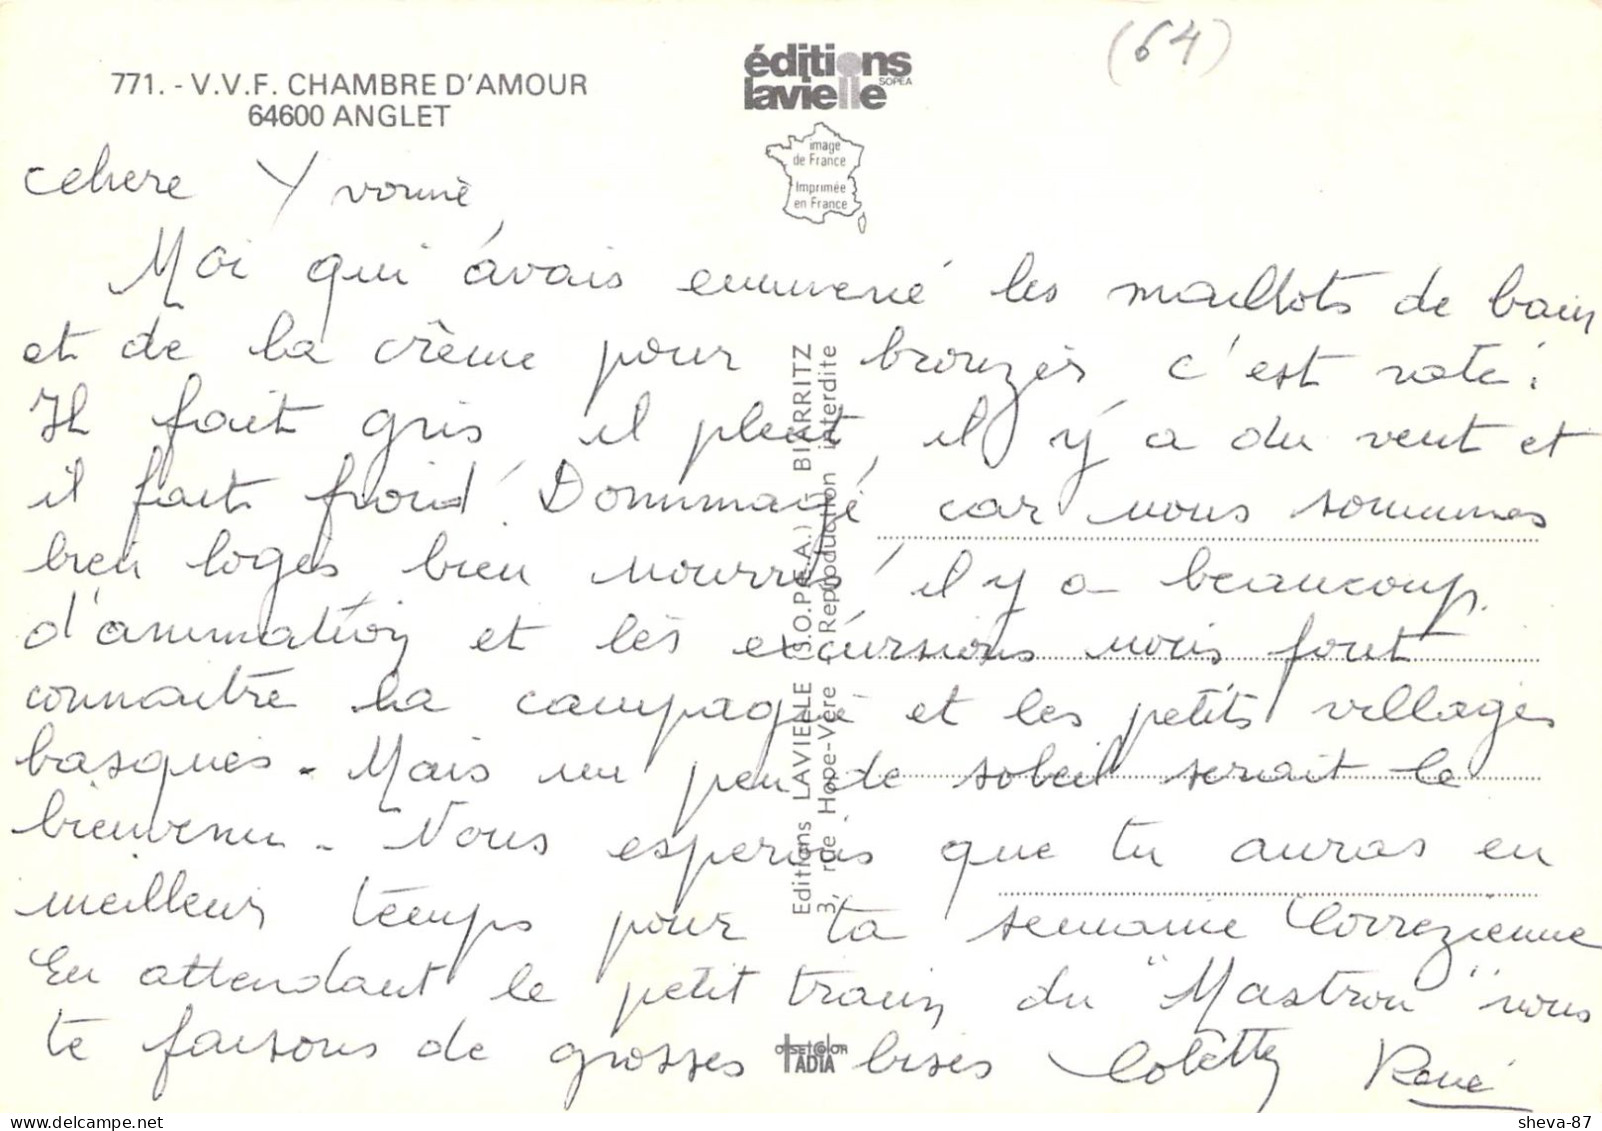 (64)
771. - V.V.F. CHAMBRE D'AMOUR
64600 ANGLET
éditions
lavielle
SOPEA
image
de France
Imprimée
en France
Editions LAVIELLE (S.O.P.E.A.) BIARRITZ
3, rue Hope-Vère - Reproduction interdite
OFFSETCOLOR
ADIA
chere Yvonne
Moi qui avais emmené les maillots de bain
et de la crème pour bronzer c'est raté !
Il fait gris il pleut, il y a du vent et
il fait froid ! Dommage, car nous sommes
bien logés bien nourris, il y a beaucoup
d'animation et les excursions nous font
connaitre la campagne et les petits villages
basques. Mais un peu de soleil serait le
bienvenu. Nous esperons que tu auras en
meilleur temps pour ta semaine Corrézienne
En attendant le petit train du "Mastrou" nous
te faisons de grosses bises Colette René
sheva-87